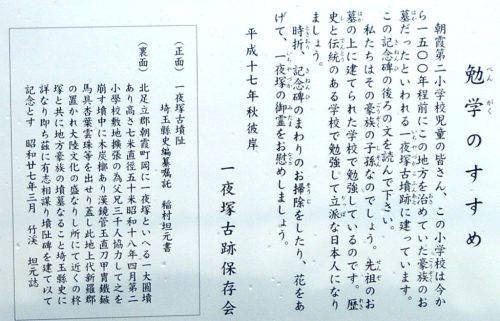 勉学のすすめ
朝霞第二小学校児童の皆さん、この小学校は今か
ら一五〇〇年程前にこの地方を治めていた豪族のお
墓だったといわれる一夜塚古墳跡に建っています。
この記念碑の後ろの文を読んで下さい。
私たちはその豪族の子孫なのでしょう。先祖のお
墓の上に建てられた学校で勉強しているのです。歴
史と伝統のある学校で勉強して立派な日本人になり
ましょう。
時折、記念碑のまわりのお掃除をしたり、花をあ
げて、一夜塚の御霊をお慰めしましょう。
平成十七年秋彼岸
一夜塚古跡保存会
(正面) 一夜塚古墳阯
埼玉縣史編纂嘱託 稲村坦元書
(裏面)
北足立郡朝霞町岡に一夜塚といへる一大圓墳
あり高さ七米直径五十米昭和十八年四月第二
小學校敷地擴張の為父兄三千人協力して之を
崩す墳中に木炭槨あり漢鏡管玉直刀甲冑鐵鏃
馬具杏葉雲珠等を出せり蓋し此地上代新羅郡
の置かれ大陸文化の盛なりし所にて近くの柊
塚と共に地方豪族の墳墓なること埼玉縣史に
詳なり弥に茲に有志相謀り墳阯碑を建て以て
記念とす 昭和廿七年三月 竹渓 坦元誌